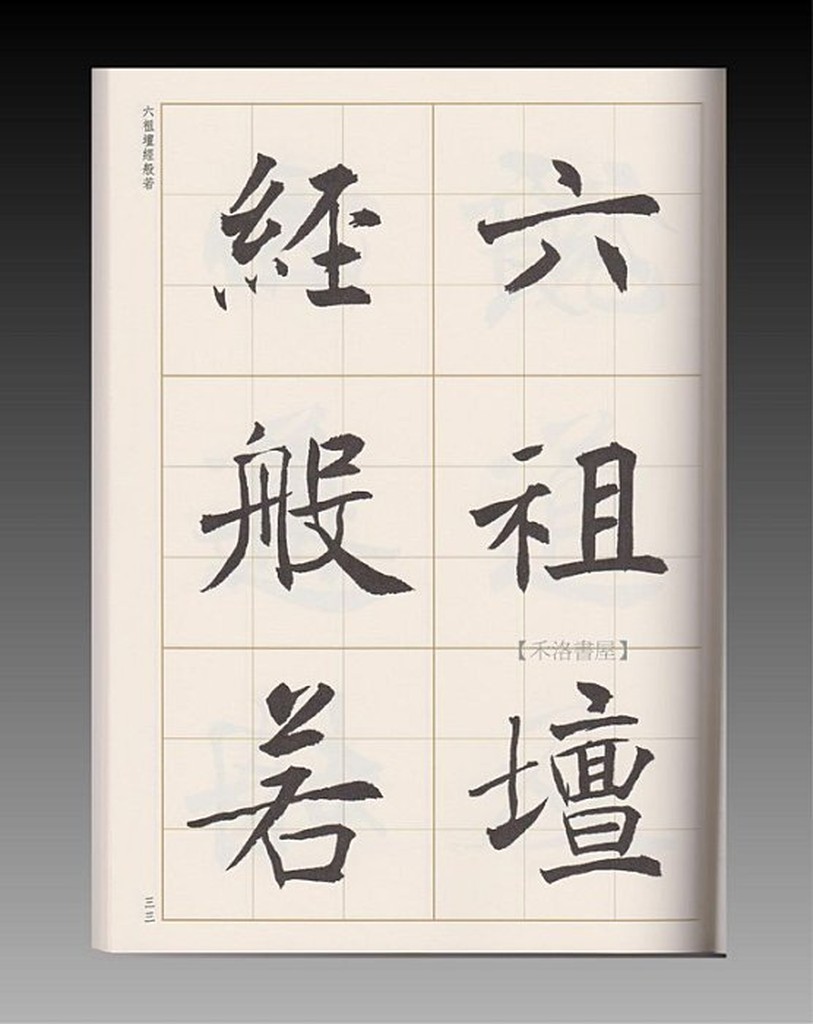 六祖壇
經般若
六祖壇經般若
三三
【禾洛書屋】